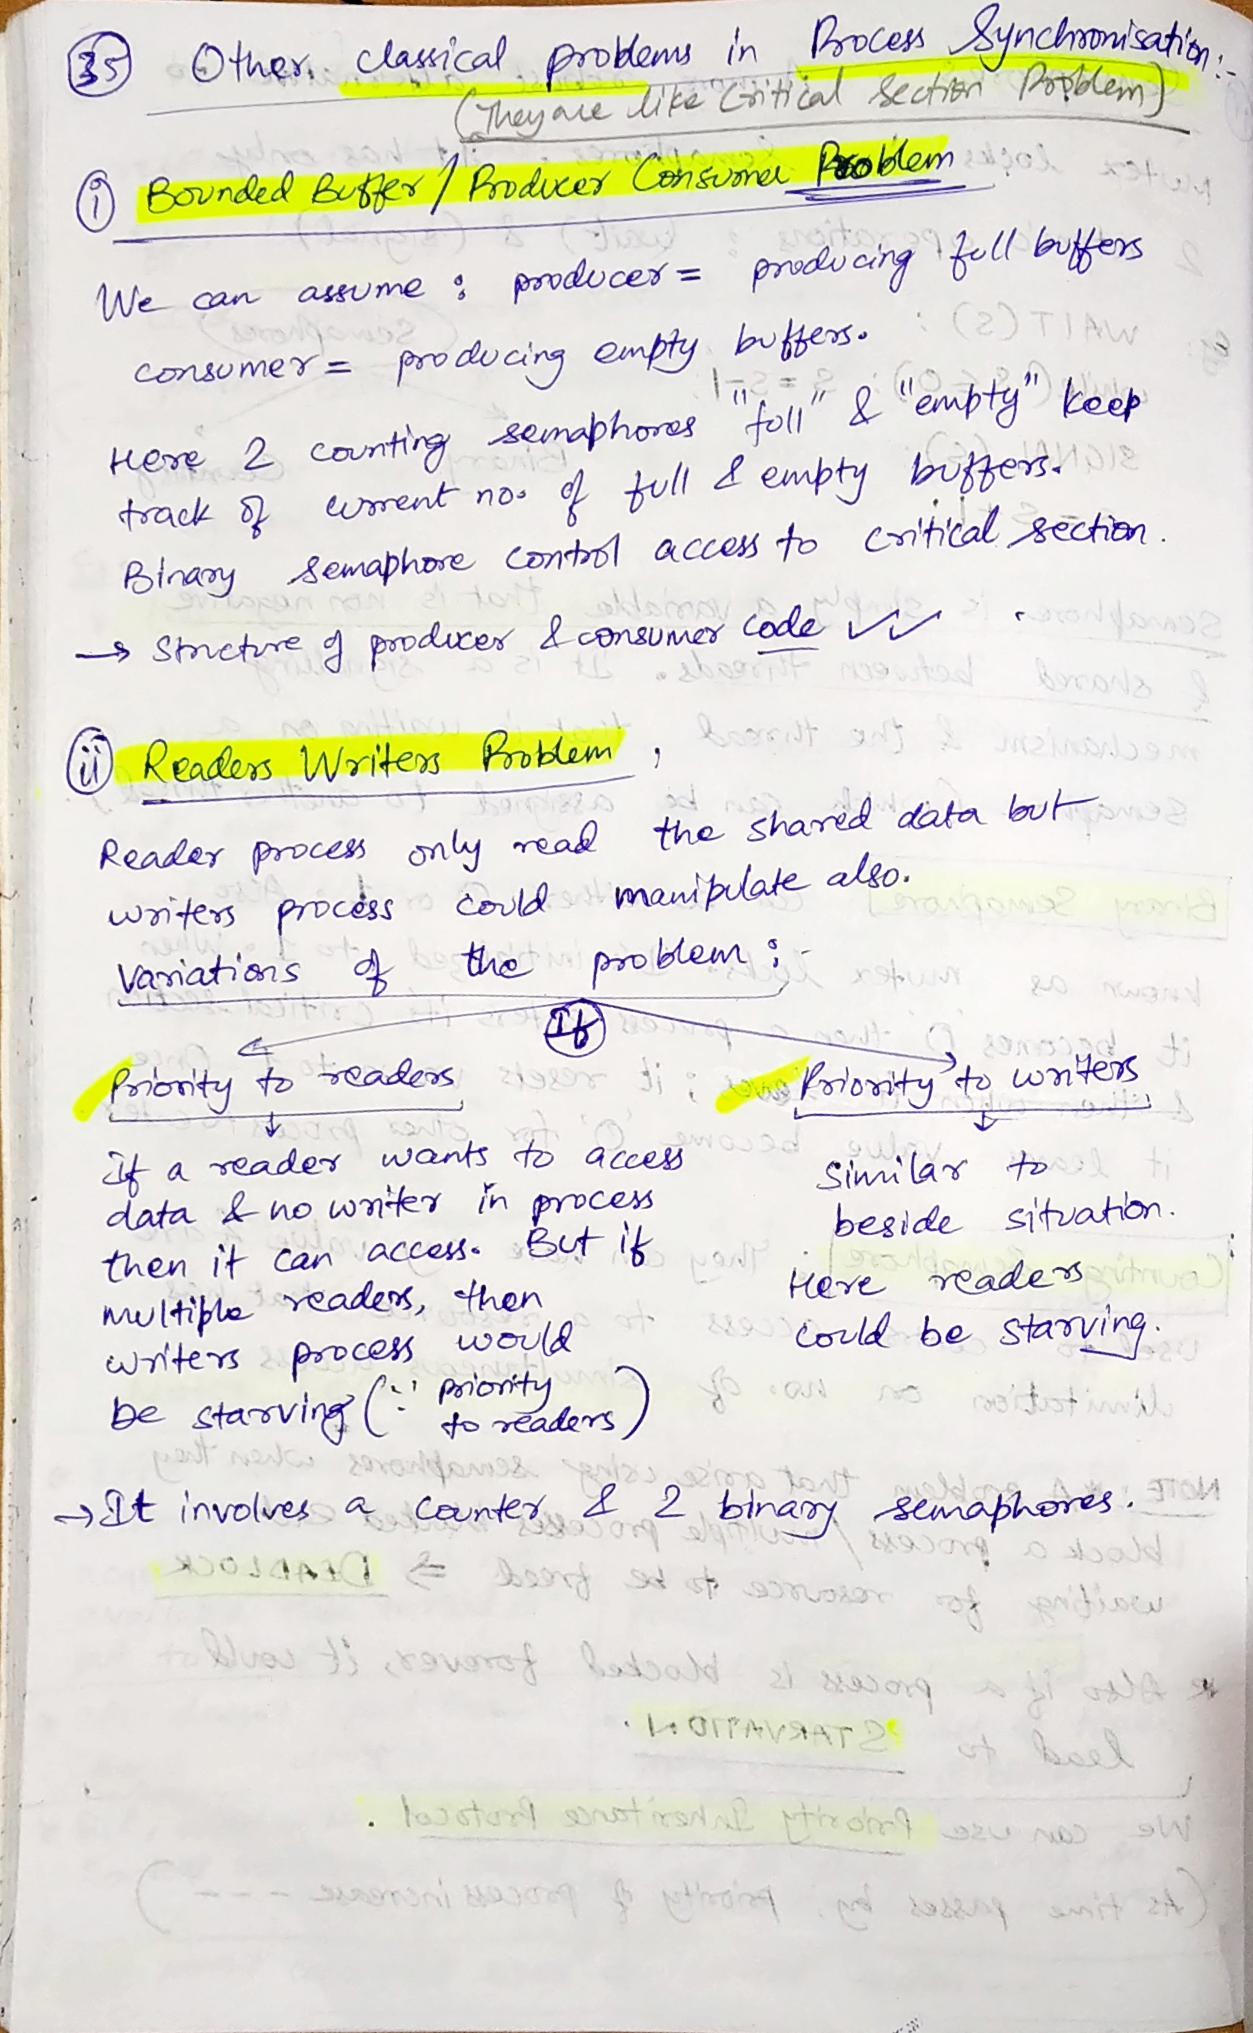 35 Other classical problems in Process Synchronisation:-
(They are like Critical Section Problem)
i Bounded Buffer / Producer Consumer Problem
We can assume : producer = producing full buffers
consumer = producing empty buffers.
Here 2 counting semaphores "full" & "empty" keep
track of current no. of full & empty buffers.
Binary semaphore control access to critical section.
→ Structure of producer & consumer code ✓✓
ii Readers Writers Problem ;
Reader process only read the shared data but
writers process could manipulate also.
Variations of the problem :-
If
Priority to readers
If a reader wants to access
data & no writer in process
then it can access. But if
multiple readers, then
writers process would
be starving (∵ priority
to readers)
Priority to writers
similar to
beside situation.
Here readers
could be starving.
→ It involves a counter & 2 binary semaphores.